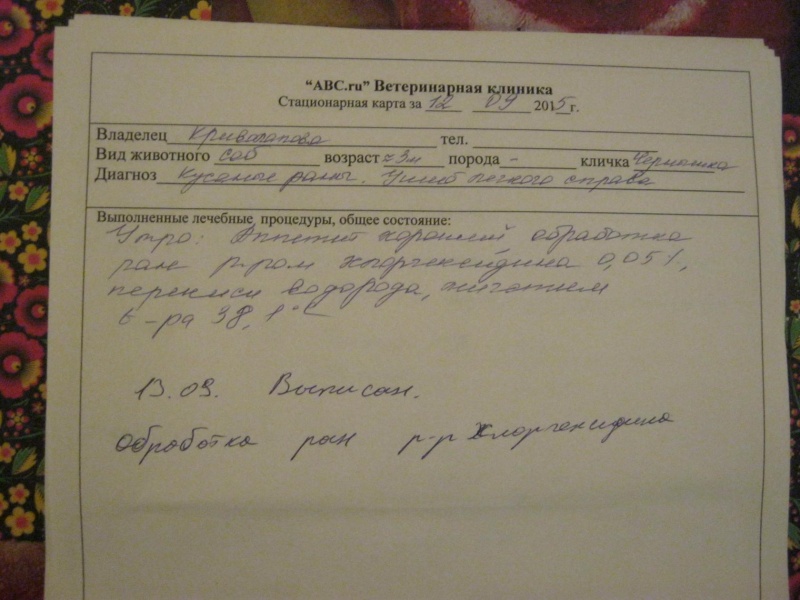 “ABC.ru” Ветеринарная клиника
Стационарная карта за 12 09 2015 г.
Владелец тел.
Вид животного соб возраст ≈ 3м порода - кличка Чернышка
Диагноз Кусаные раны. Ушиб легкого справа
Выполненные лечебные, процедуры, общее состояние:
Утро: Аппетит хороший, обработка
ран р-ром хлоргексидина 0,05%,
перекиси водорода,
t-ра 38,1°C
13.09. Выписан.
Обработка ран р-р Хлоргексидина